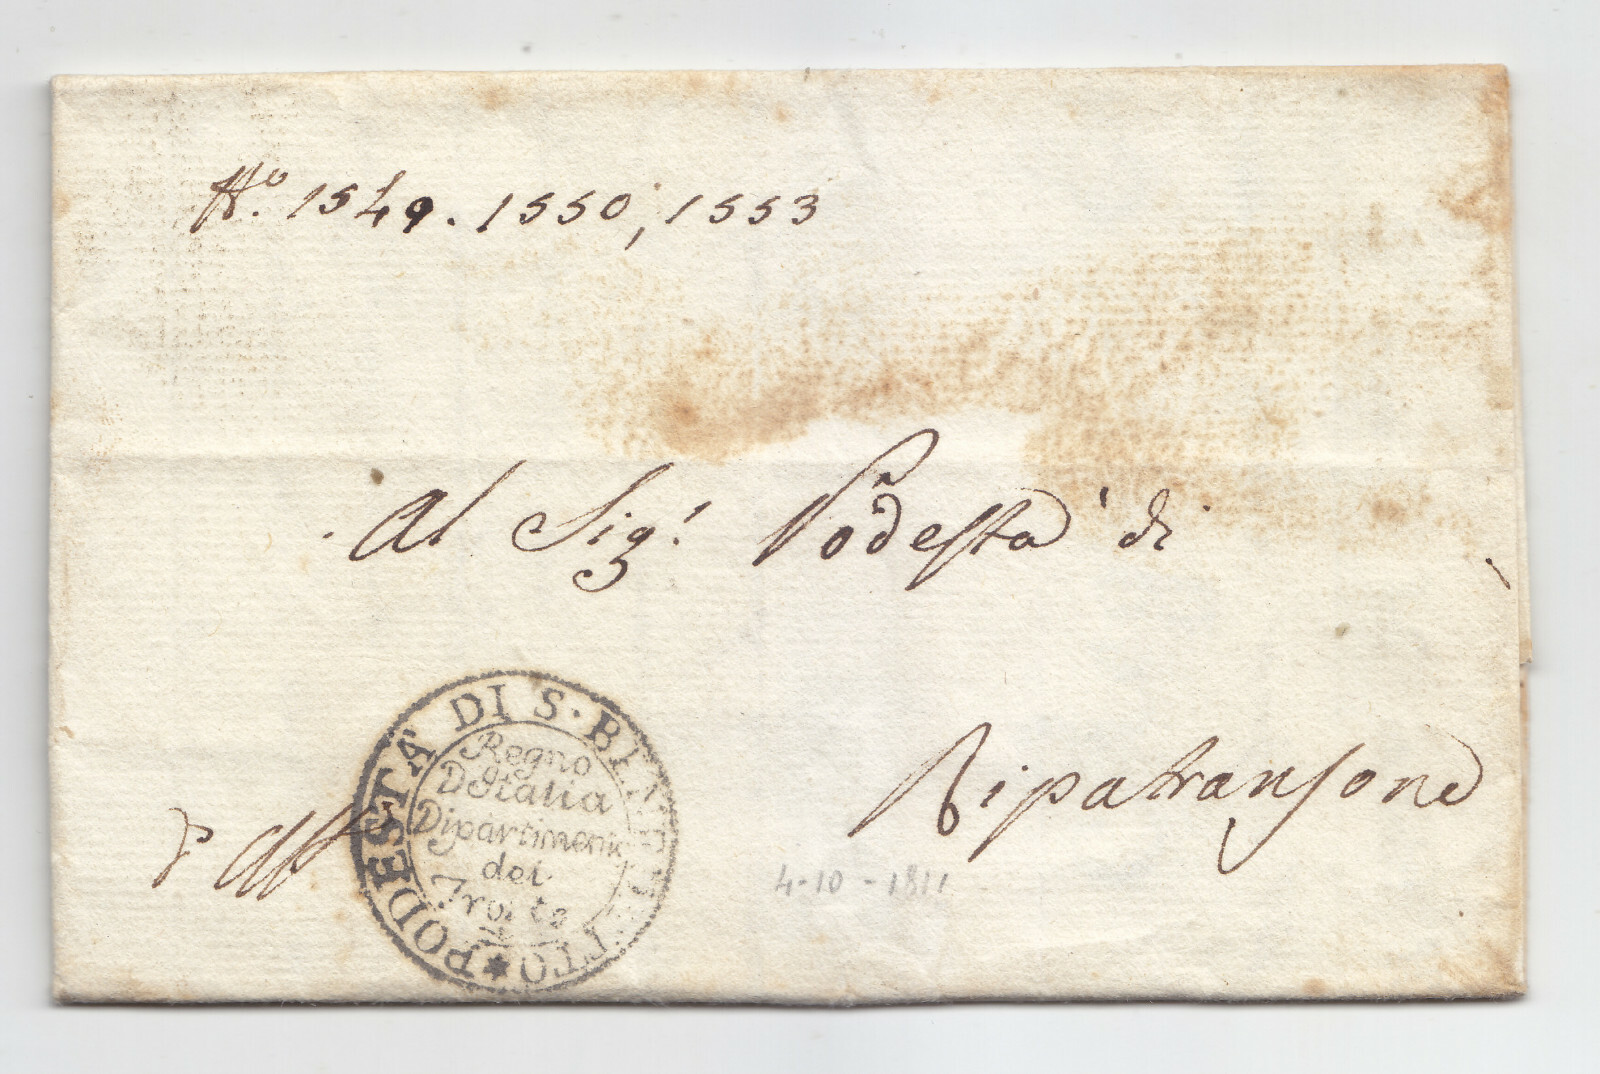 N.º 1549. 1550, 1553
Al Sig.r Podestà di
Ripatransone
PODESTA' DI S. BENEDETTO
Regno
D'Italia
Dipartimento
del
Tronto
4-10-1811